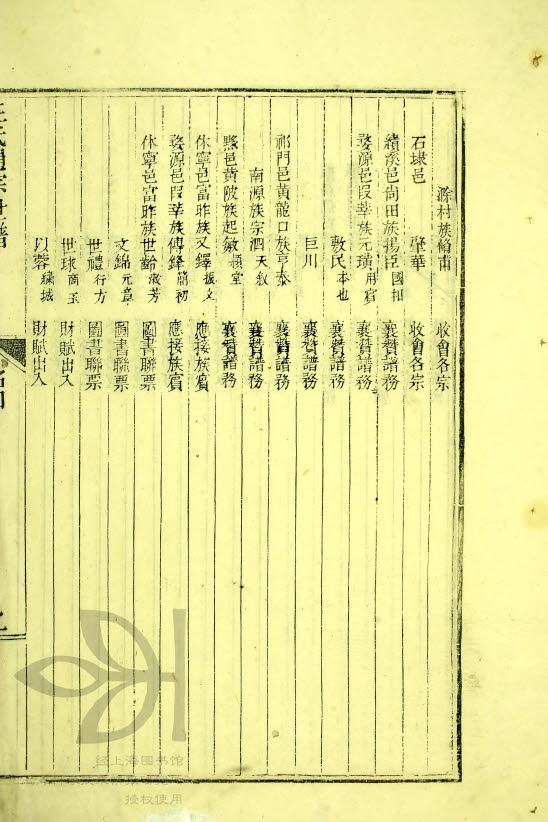 滁村族 甫 收會各宗
石埭邑 肇華 收會各宗
績溪邑尚田族揚臣國和 襄贊譜務
婺源邑段莘族元璜用賓 襄贊譜務
敦民本也 襄贊譜務
巨川 襄贊譜務
祁門邑黃龍口族亨泰 襄贊譜務
南源族宗泗天敘 襄贊譜務
黟邑黃陂族起敏穎堂 襄贊譜務
休寧邑富昨族又鐸振文 應接族賓
婺源邑段莘族傳鋒簡初 應接族賓
休寧邑富昨族世齡 芳 圖書聯票
文錦元章 圖書聯票
世禮行方 圖書聯票
世球商玉 財賦出入
以蓉 城 財賦出入
氏通宗世譜
经上海图书馆
授权使用